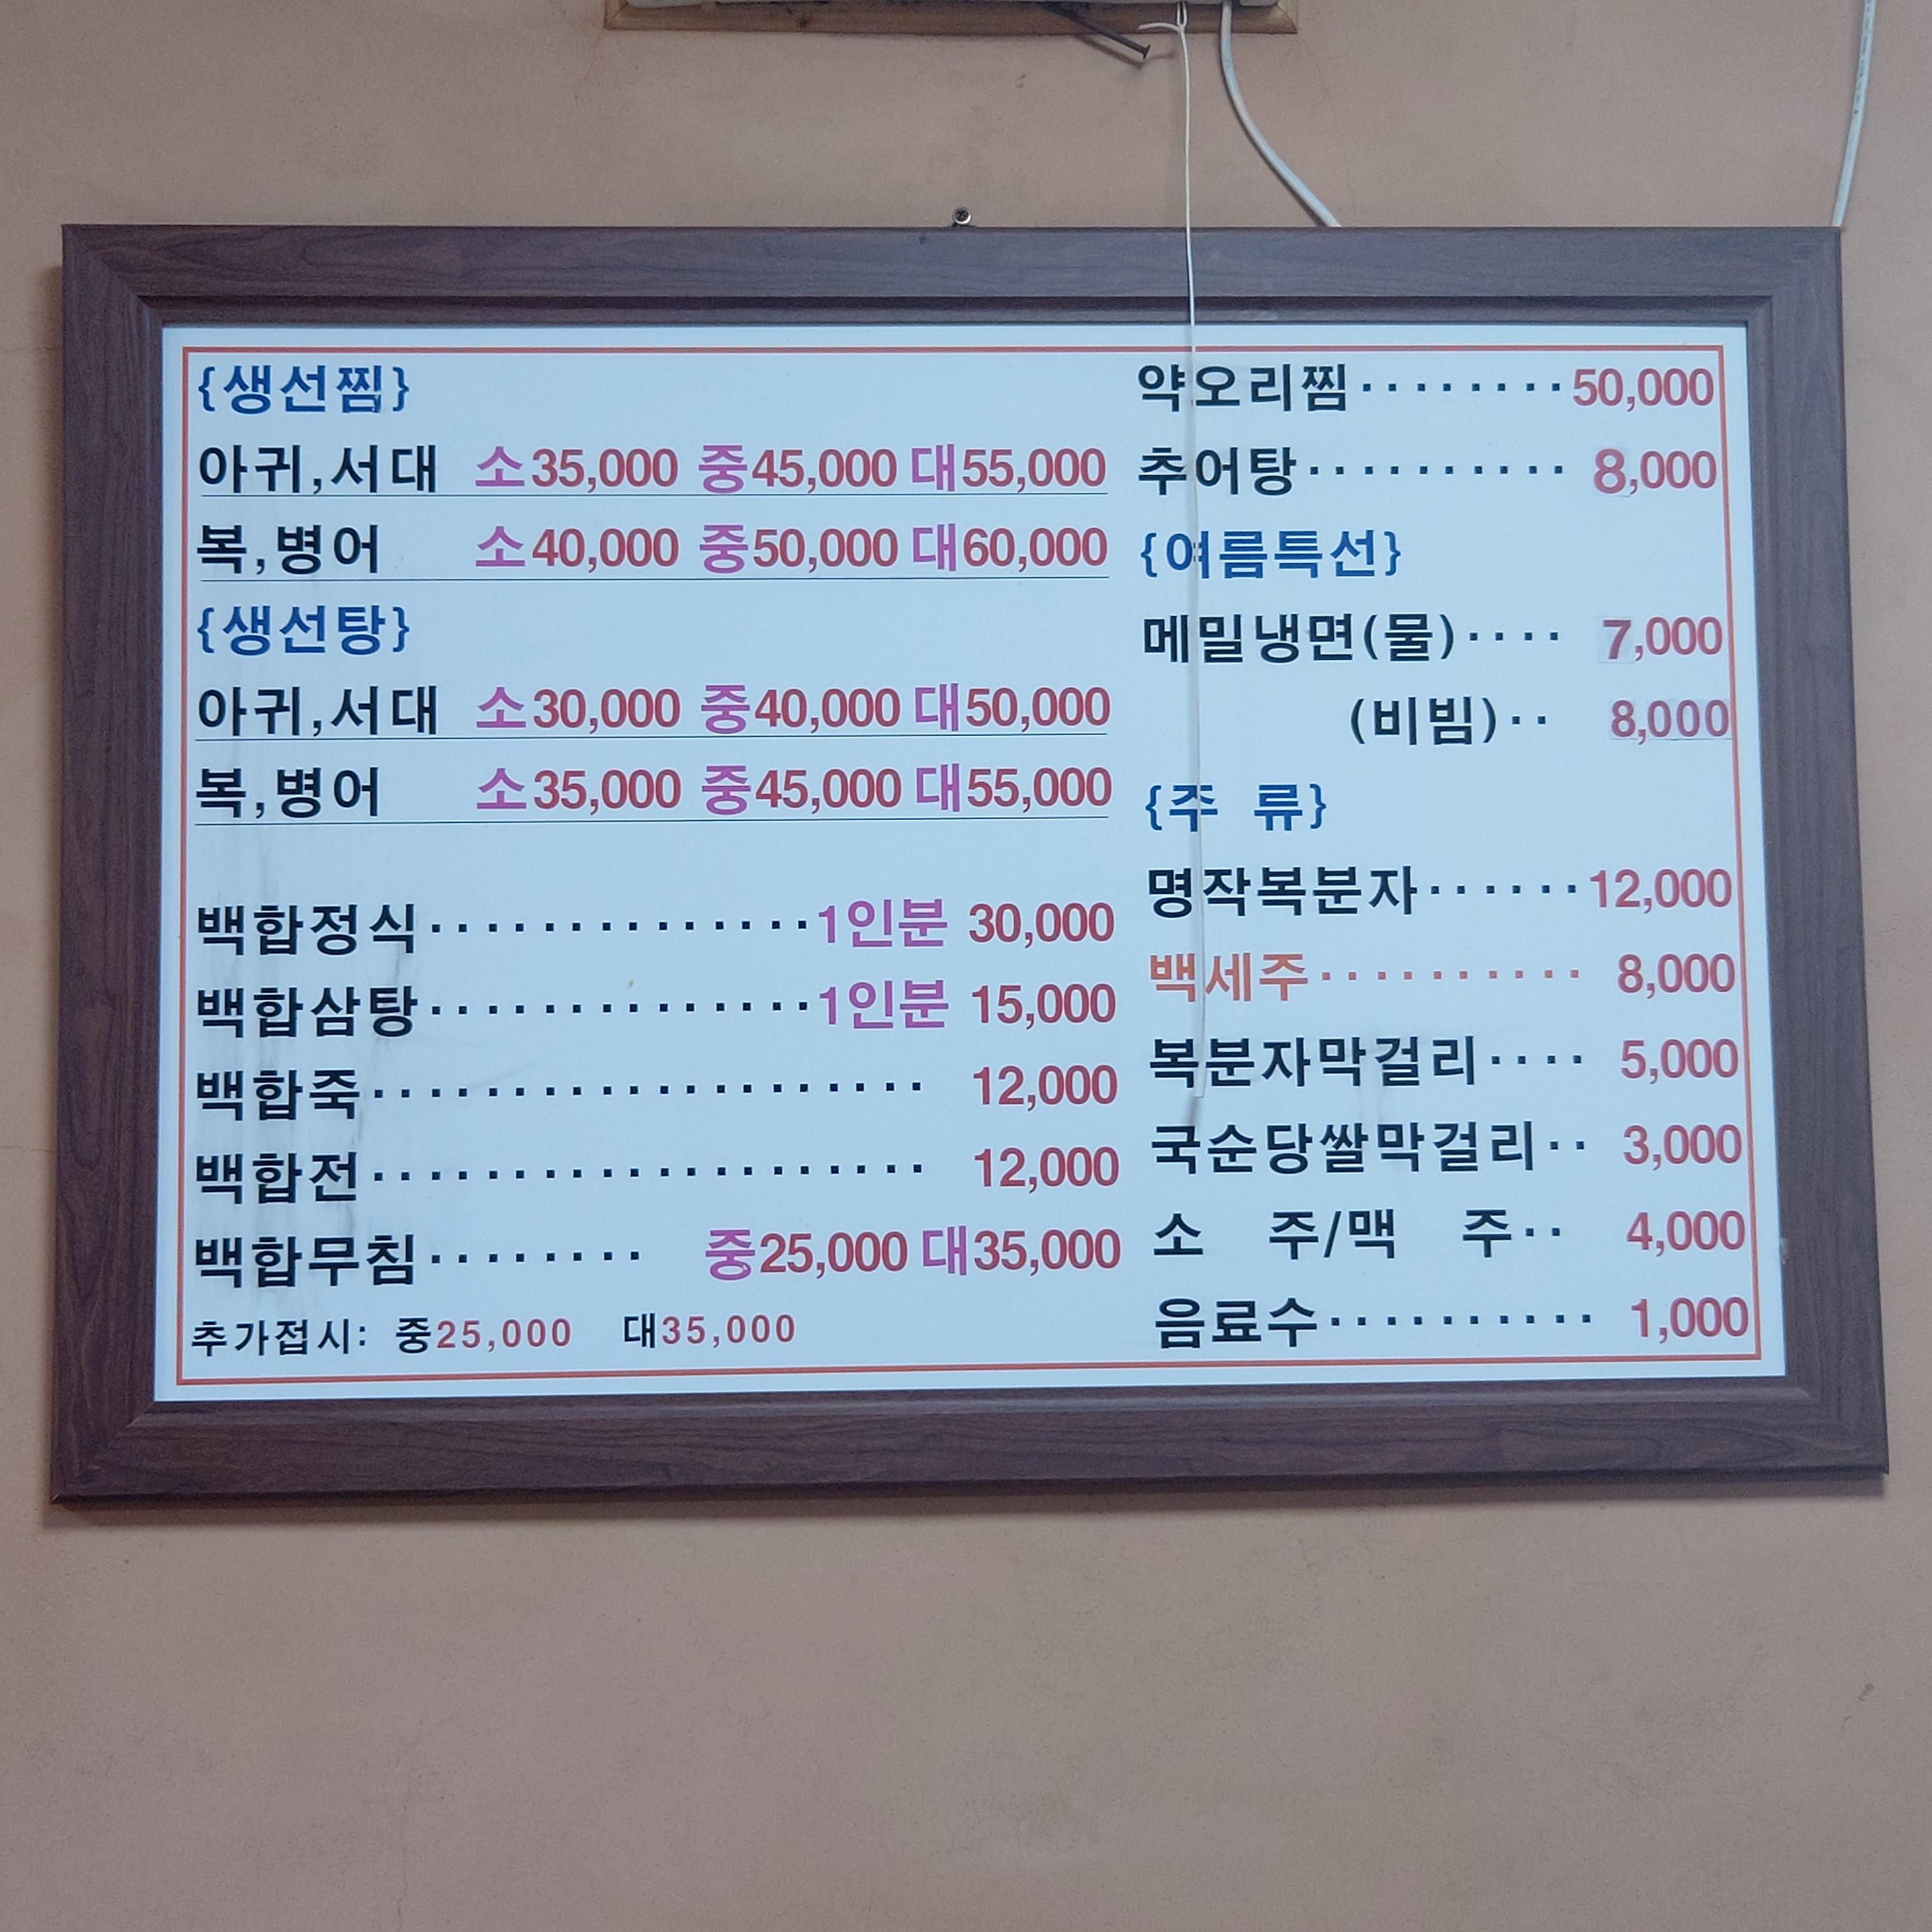 {생선찜}
아귀,서대 소35,000 중45,000 대55,000
복,병어 소40,000 중50,000 대60,000
{생선탕}
아귀,서대 소30,000 중40,000 대50,000
복,병어 소35,000 중45,000 대55,000
백합정식··············1인분 30,000
백합삼탕··············1인분 15,000
백합죽···················· 12,000
백합전···················· 12,000
백합무침········ 중25,000 대35,000
추가접시: 중25,000 대35,000
약오리찜········50,000
추어탕·········· 8,000
{여름특선}
메밀냉면(물)···· 7,000
(비빔)·· 8,000
{주 류}
명작복분자······12,000
백세주·········· 8,000
복분자막걸리···· 5,000
국순당쌀막걸리·· 3,000
소 주/맥 주·· 4,000
음료수·········· 1,000